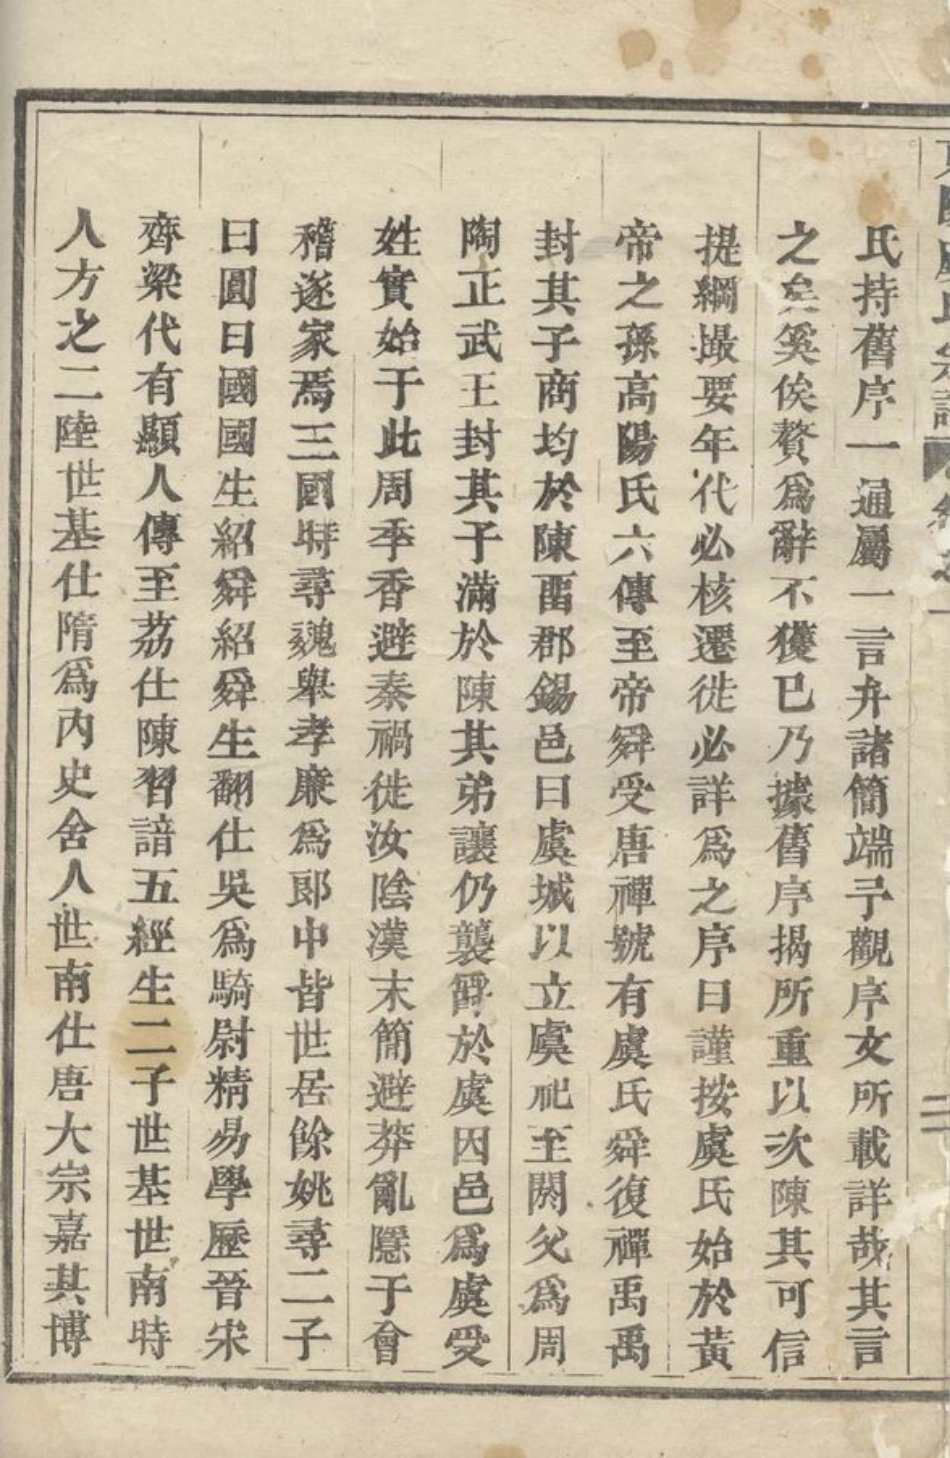 氏持舊序一通屬一言弁諸簡端予觀序文所載詳哉其言
之矣奚俟贅為辭不獲已乃據舊序揭所重以次陳其可信
提綱撮要年代必核遷徙必詳為之序曰謹按虞氏始於黃
帝之孫高陽氏六傳至帝舜受唐禪號有虞氏舜復禪禹禹
封其子商均於陳畱郡錫邑曰虞城以立虞祀至閼父為周
陶正武王封其子滿於陳其弟讓仍襲爵於虞因邑為虞受
姓實始于此周季香避秦禍徙汝陰漢末簡避莽亂隱于會
稽遂家焉三國時尋魏舉孝廉為郎中皆世居餘姚尋二子
曰圓曰國國生紹舜紹舜生翻仕吳為騎尉精易學歷晉宋
齊梁代有顯人傳至荔仕陳習諳五經生二子世基世南時
人方之二陸世基仕隋為內史舍人世南仕唐大宗嘉其博